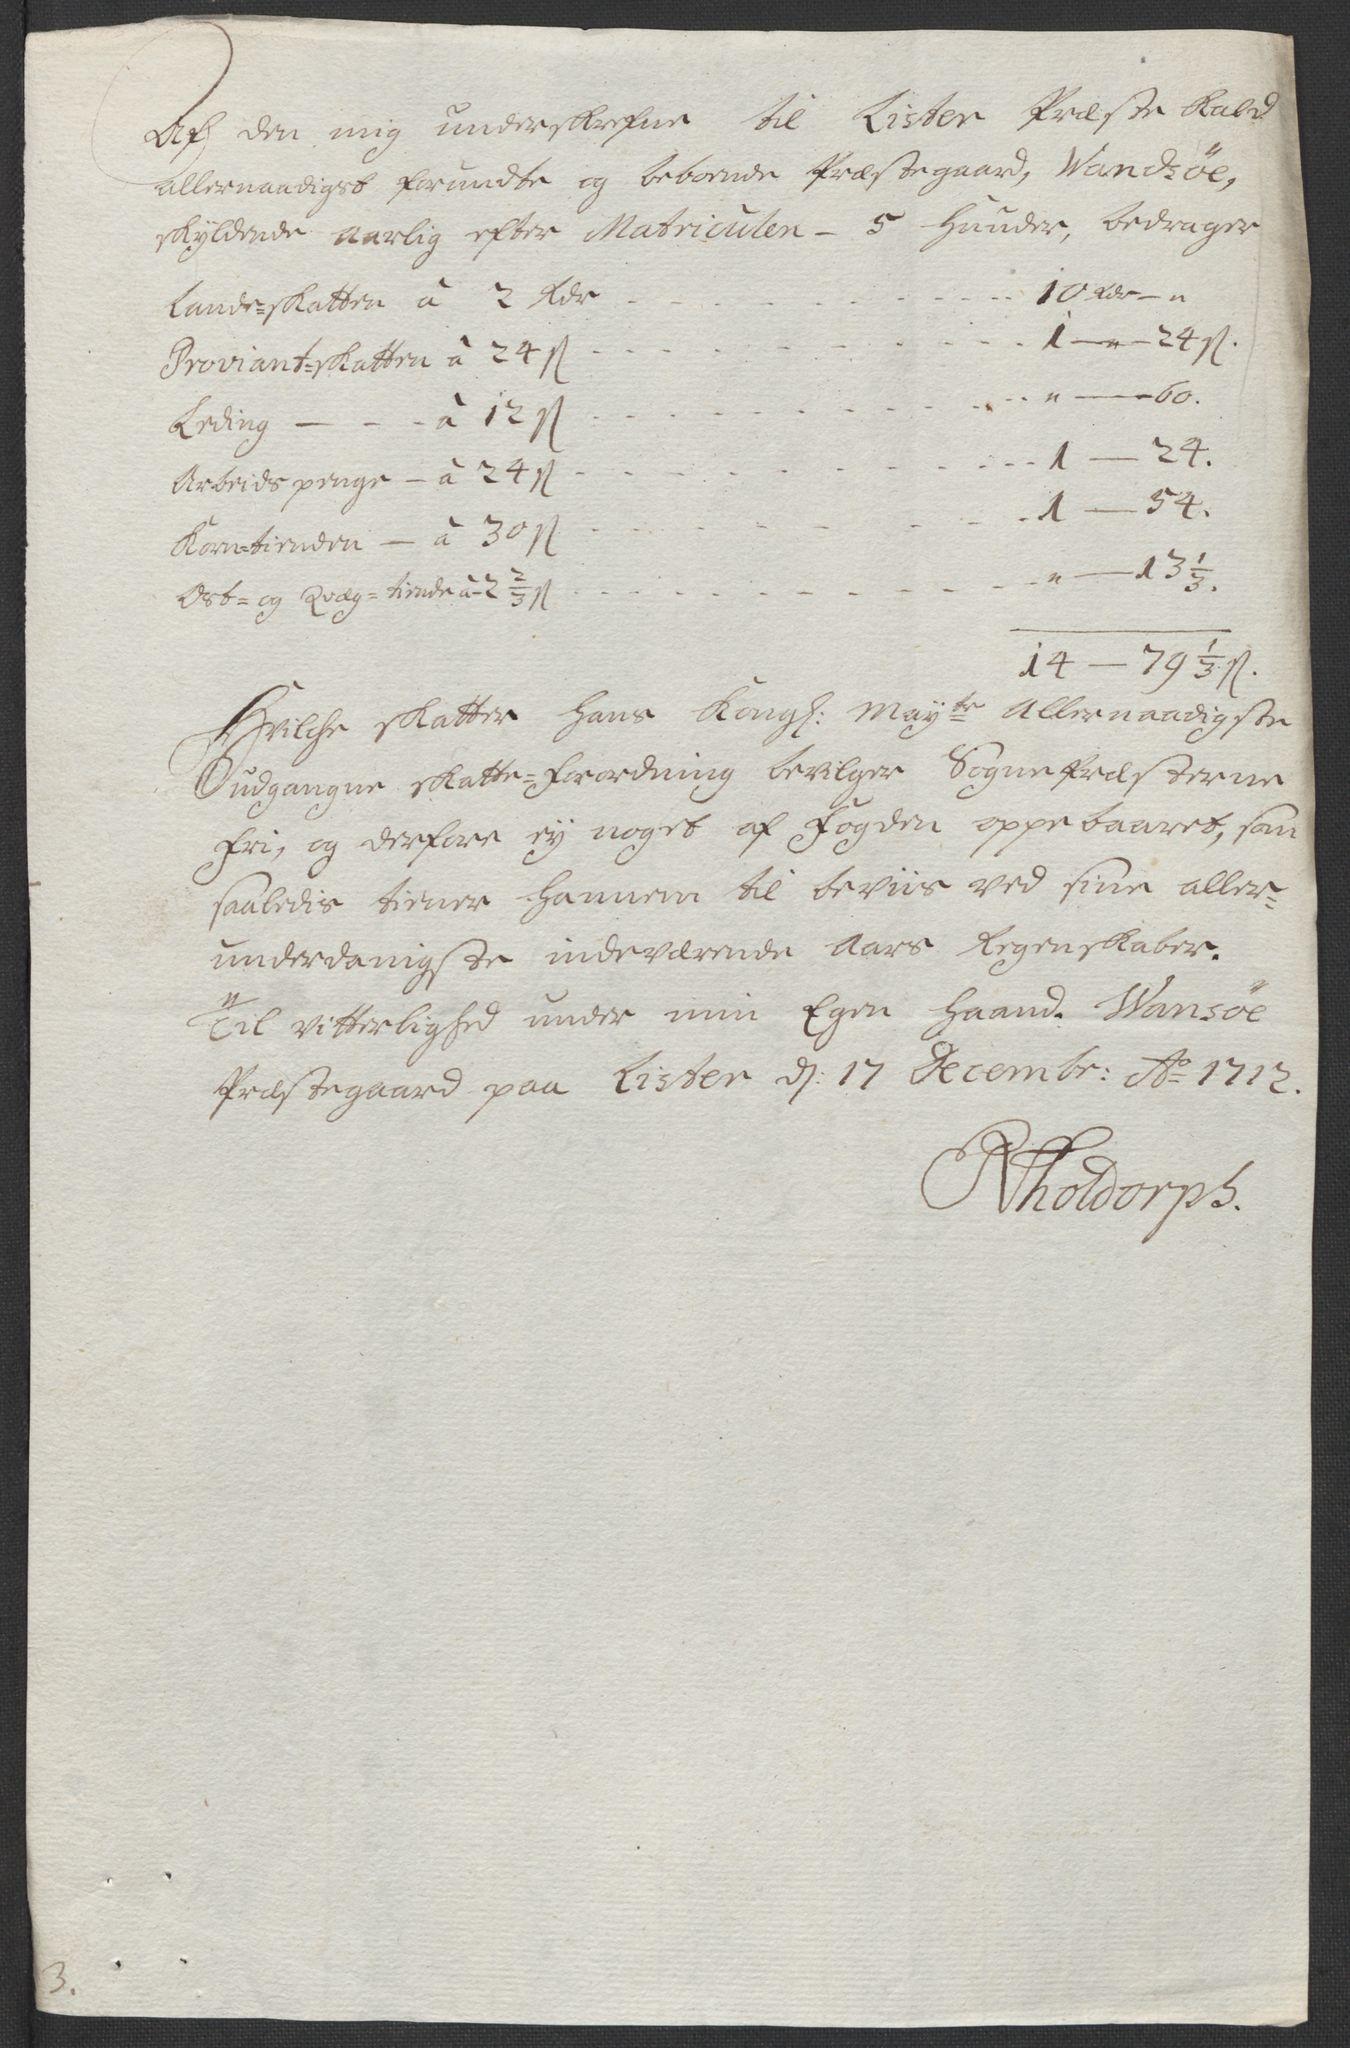 Af den mig underskrefne til Lister Præste Kald
allernaadigst forundte og beboende Præstegaard, Wandsöe,
skyldende aarlig efter Matriculen - 5 Huuder, bedrager
Lands=skatten â 2 Rdr - - - 10 Rdr - "
Proviant=skatten â 24 ß - - - 1 - " - 24 ß.
Leding - - - â 12 ß - - - " - 60.
Arbeids penge - â 24 ß - - - 1 - 24.
Korn=tienden - â 30 ß - - - 1 - 54.
Ost= og Qvæg=tiende â 2 2/3 ß - - - " - 13 1/3.
14 - 79 1/3 ß.
Hvilche skatter Hans Kongl: Mayte Allernaadigste
udgangne skatte=Forordning bevilger Sognepræsterne
fri, og derfore ey noget af Fogden oppebaaret, som
saaledis tiener hannem til beviis ved sine aller=
underdanigste indeværende Aars Regenskaber.
Til vitterlighed under min Egen Haand. Wansöe
Præstegaard paa Lister d: 17 Decembr: Ao 1712.
Rholdorph.
3.